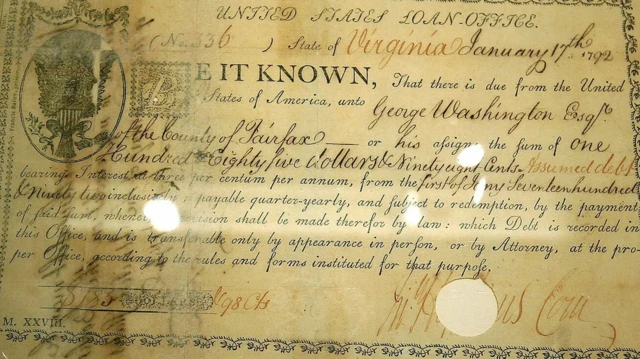 UNITED STATES LOAN-OFFICE.
(No. 336 ) State of Virginia January 17th 1792
BE IT KNOWN, That there is due from the United
States of America, unto George Washington Esqr
of the County of Fairfax or his assigns the sum of One
Hundred Eighty five dollars & Ninety eight Cents Assumed debt
bearing Interest at three per centum per annum, from the first of Jany Seventeen hundred
& Ninety two inclusively payable quarter-yearly, and subject to redemption, by the payment
of said sum, whenever provision shall be made therefor by law: which Debt is recorded in
this Office, and is transferable only by appearance in person, or by Attorney, at the pro-
per Office, according to the rules and forms instituted for that purpose.
DOLLARS 98 Cts
M. XXVIII.